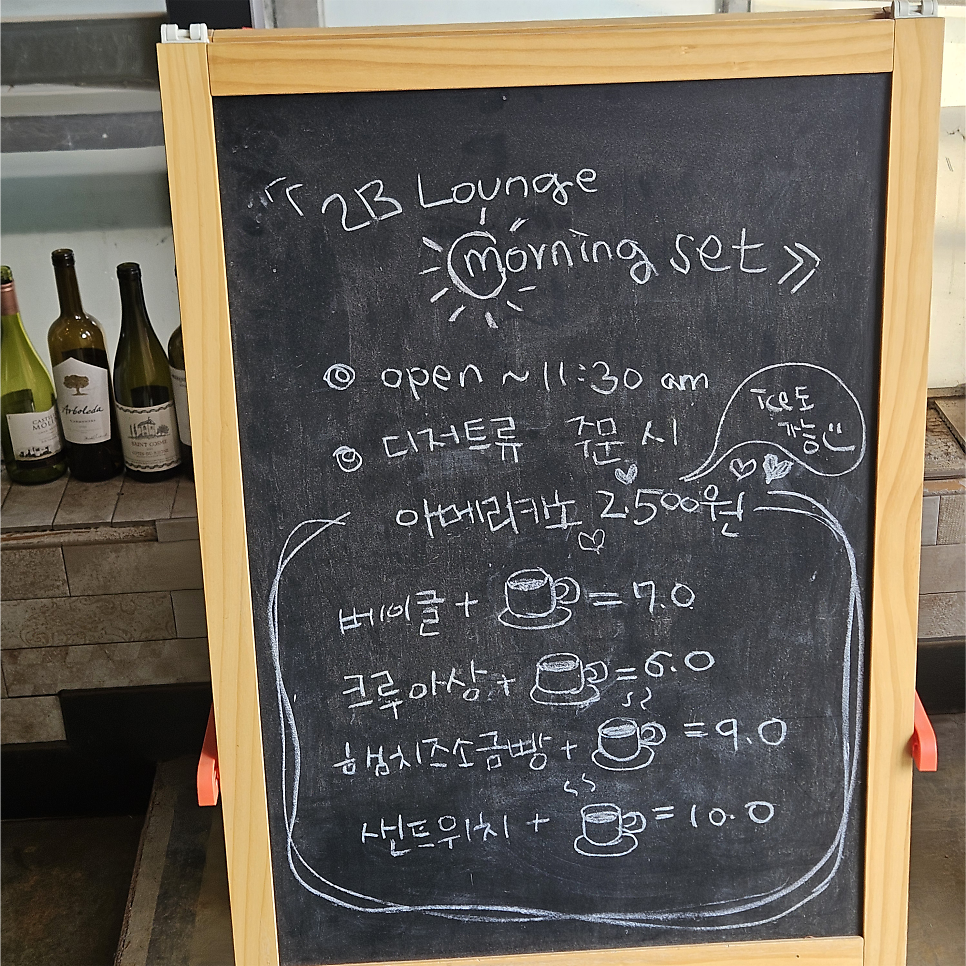 "2B Lounge
morning set »
open ~ 11:30 am
디저트류 주문 시
ice도
가능
아메리카노 2.500원
베이글 + = 7.0
크루아상 + = 6.0
햄치즈소금빵 + = 9.0
샌드위치 + = 10.0
Arboleda
CASTEL
SAINT COSME